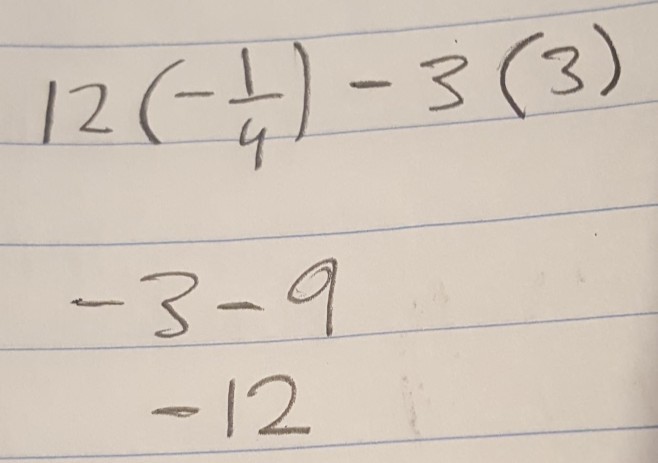 12(-1/4) - 3(3)
-3-9
-12